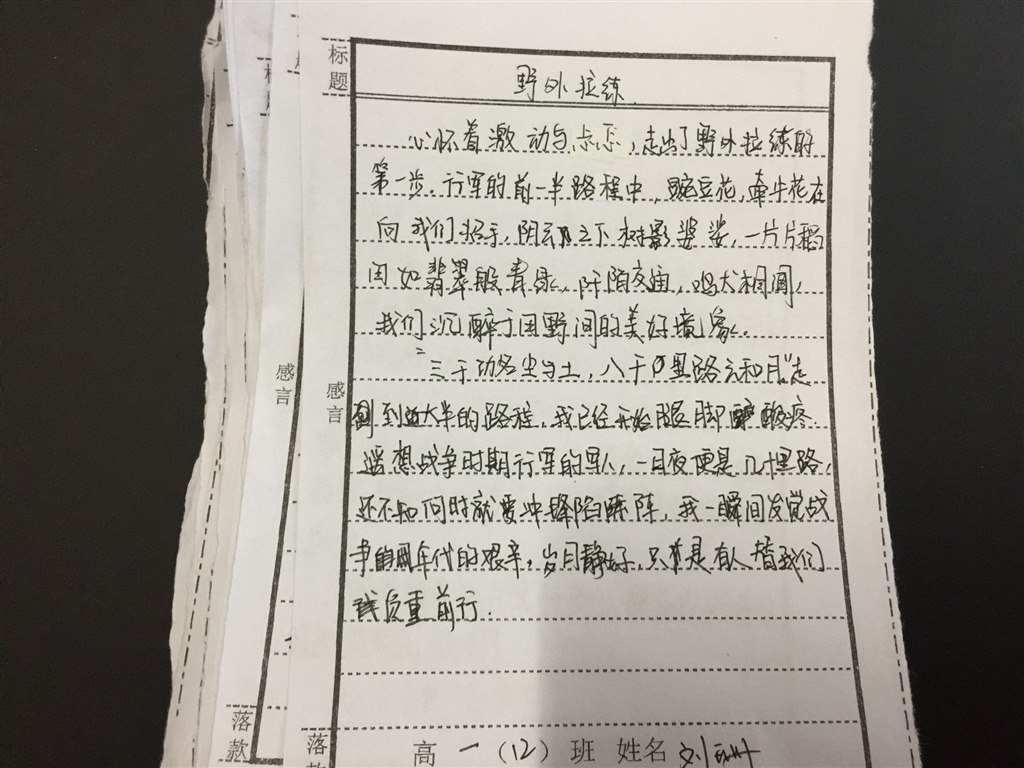 标题
野外拉练
心怀着激动与忐忑，走出了野外拉练的
第一步。行军的前一半路程中，豌豆花，牵牛花在
向我们招手，阴云之下树影婆娑，一片片稻
田如翡翠般青绿，阡陌交通，鸡犬相闻，
我们沉醉于田野间的美好境象。
“三千功名尘与土，八千里路云和月”走
到近大半的路程，我已经开始腿脚酸疼
遥想战争时期行军的军人，一日夜便是几十里路，
还不知何时就要冲锋陷阵，我一瞬间发觉战
争的年代的艰辛。岁月静好，只是有人替我们
负重前行.
感言
感言
落款
落款
高一（12）班 姓名 刘